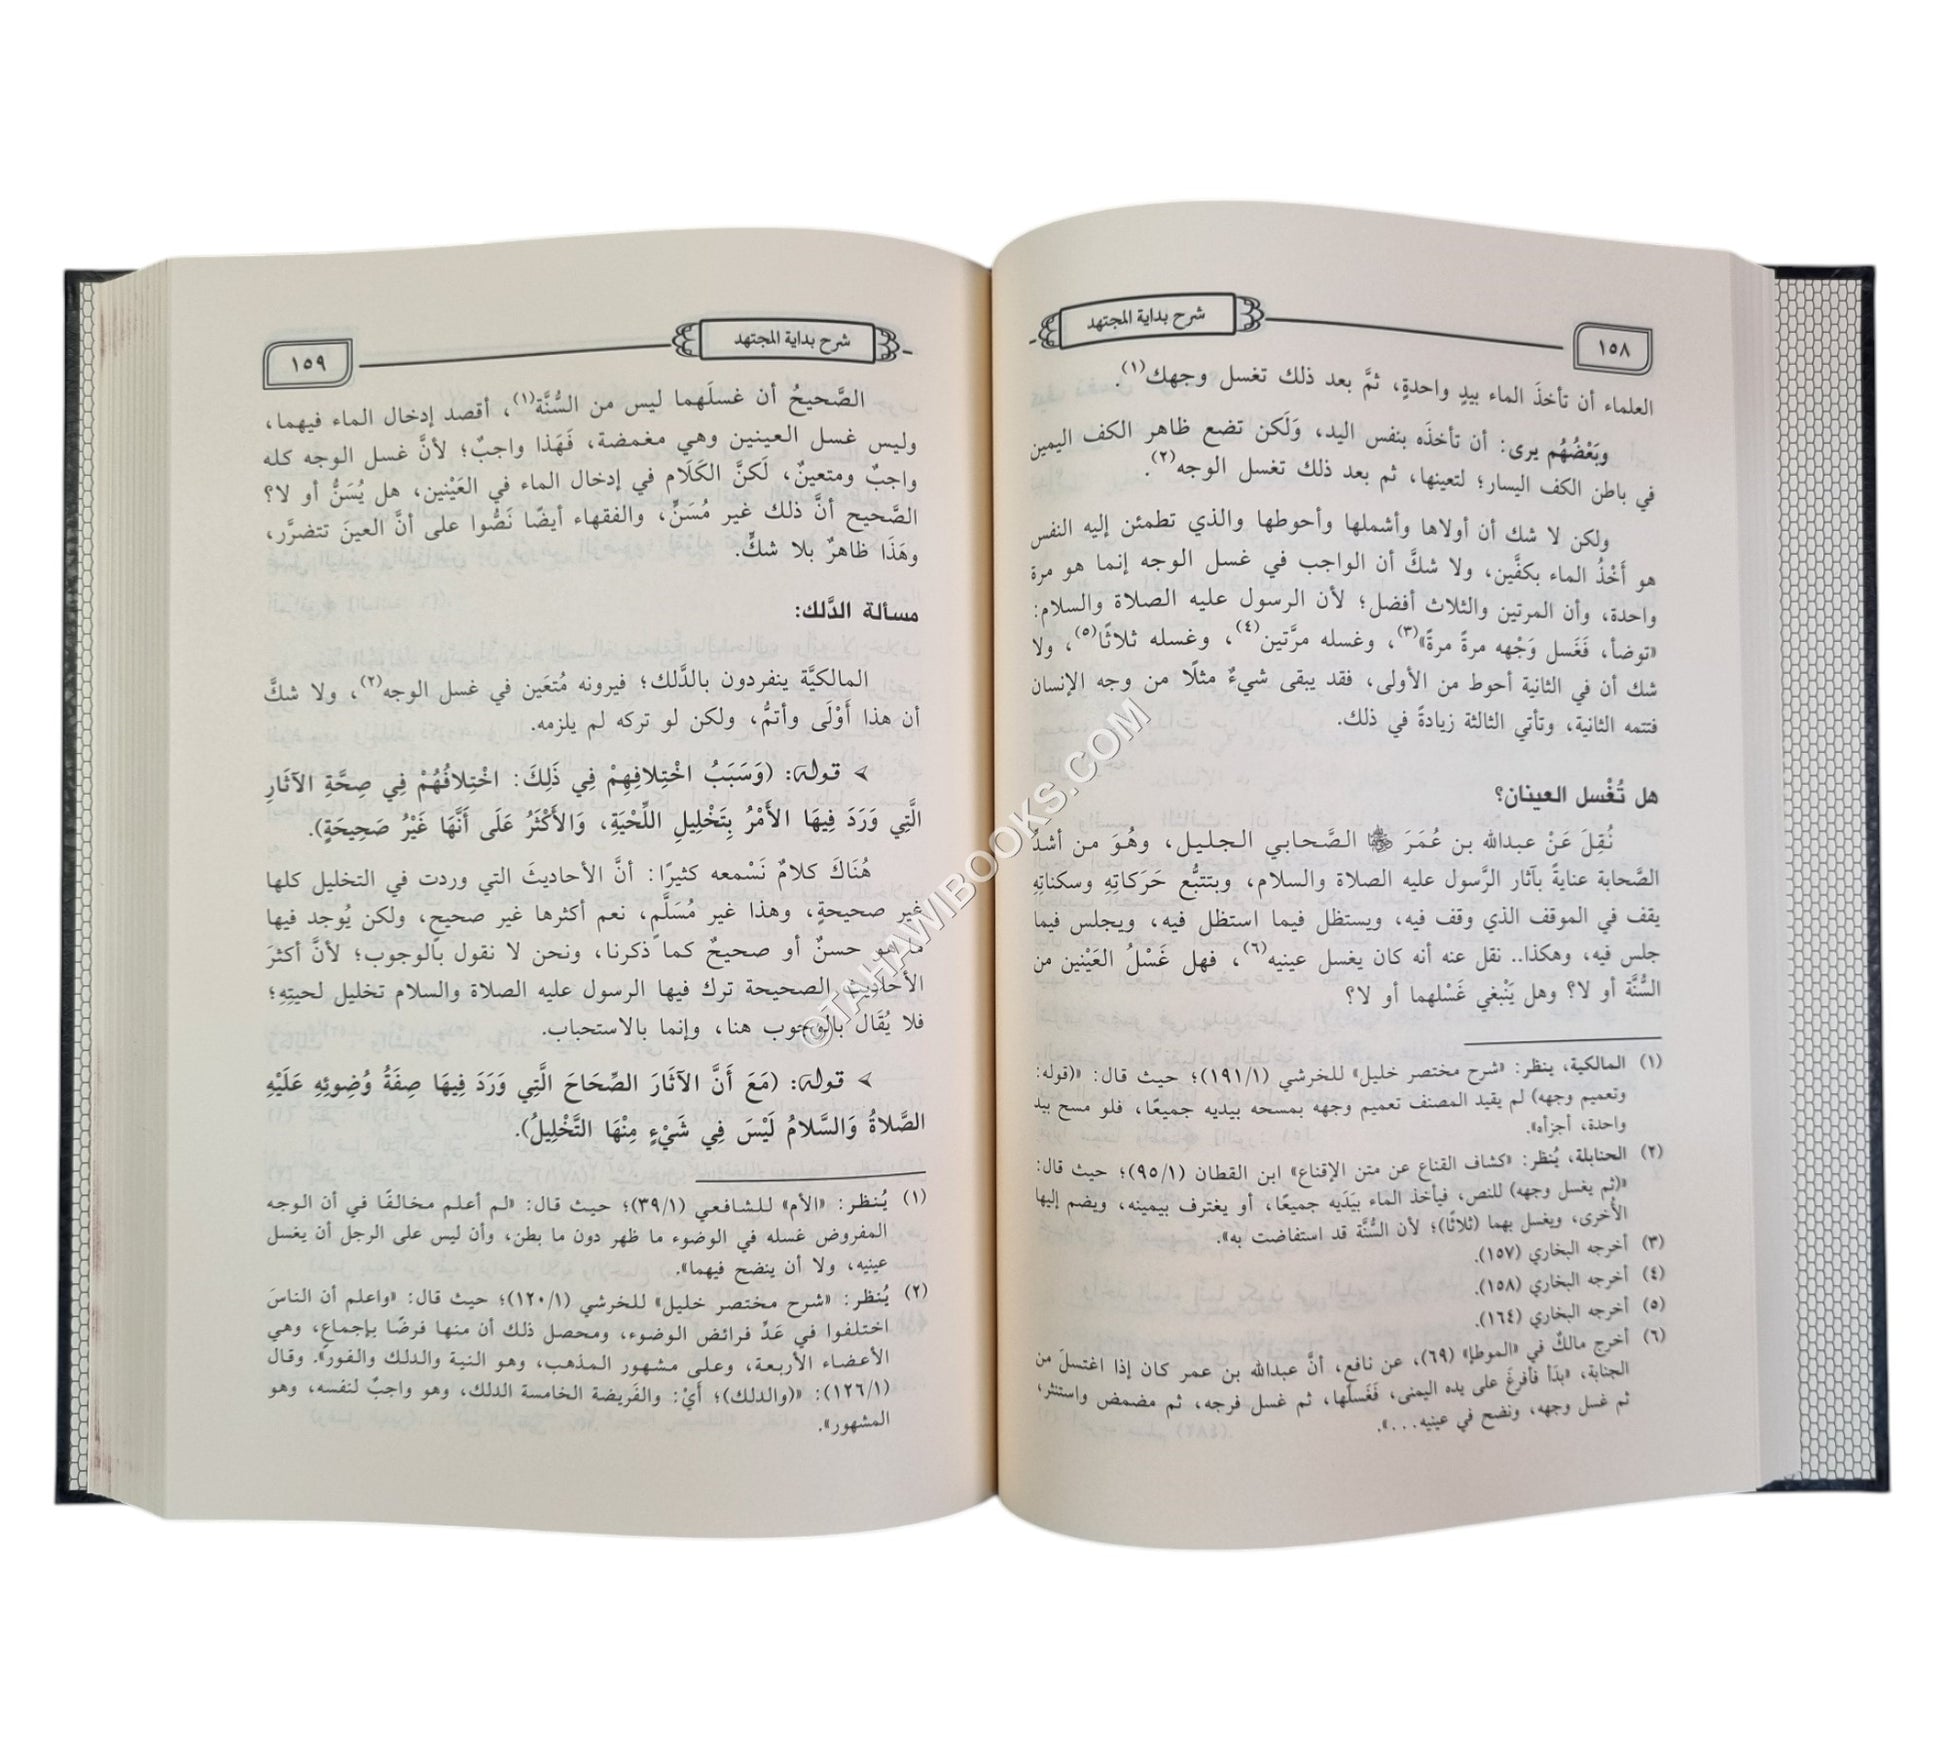 ١٥٨
شرح بداية المجتهد
العلماء أن تأخذَ الماء بيدٍ واحدةٍ، ثمَّ بعد ذلك تغسل وجهك(١).
وبَعْضُهُم يرى: أن تأخذَه بنفس اليد، وَلَكن تضع ظاهر الكف اليمين
في باطن الكف اليسار؛ لتعينها، ثم بعد ذلك تغسل الوجه(٢).
ولكن لا شك أن أولاها وأشملها وأحوطها والذي تطمئن إليه النفس
هو أَخْذُ الماء بكفَّين، ولا شكَّ أن الواجب في غسل الوجه إنما هو مرة
واحدة، وأن المرتين والثلاث أفضل؛ لأن الرسول عليه الصلاة والسلام:
«توضأ، فَغَسل وَجْهه مرةً مرةً»(٣)، وغسله مرَّتين(٤)، وغسله ثلاثًا(٥)، ولا
شك أن في الثانية أحوط من الأولى، فقد يبقى شيءٌ مثلًا من وجه الإنسان
فتتمه الثانية، وتأتي الثالثة زيادةً في ذلك.
هل تُغْسل العينان؟
نُقِلَ عَنْ عبدالله بن عُمَرَ الصَّحابي الجليل، وهُوَ من أشدِّ
الصَّحابة عنايةً بآثار الرَّسول عليه الصلاة والسلام، وبتتبُّع حَرَكاتِهِ وسكناتِهِ
يقف في الموقف الذي وقف فيه، ويستظل فيما استظل فيه، ويجلس فيما
جلس فيه، وهكذا.. نقل عنه أنه كان يغسل عينيه(٦)، فهل غَسْلُ العَيْنين من
السُّنَّة أو لا؟ وهل يَنْبغي غَسْلهما أو لا؟
(١) المالكية، ينظر: «شرح مختصر خليل» للخرشي (١٩١/١)؛ حيث قال: «(قوله:
وتعميم وجهه) لم يقيد المصنف تعميم وجهه بمسحه بيديه جميعًا، فلو مسح بيد
واحدة، أجزأه».
(٢) الحنابلة، يُنظر: «كشاف القناع عن متن الإقناع» ابن القطان (٩٥/١)؛ حيث قال:
«(ثم يغسل وجهه) للنص، فيأخذ الماء بيَدَيه جميعًا، أو يغترف بيمينه، ويضم إليها
الأُخرى، ويغسل بهما (ثلاثًا)؛ لأن السُّنَّة قد استفاضت به».
(٣) أخرجه البخاري (١٥٧).
(٤) أخرجه البخاري (١٥٨).
(٥) أخرجه البخاري (١٦٤).
(٦) أخرج مالكٌ في «الموطإ» (٦٩)، عن نافعٍ، أنَّ عبدالله بن عمر كان إذا اغتسلَ من
الجنابة، «بدَأ فأفرغَ على يده اليمنى، فَغَسلها، ثم غسل فرجه، ثم مضمض واستنثر،
ثم غسل وجهه، ونضح في عينيه...».
شرح بداية المجتهد
١٥٩
الصَّحيحُ أن غسلَهما ليس من السُّنَّة(١)، أقصد إدخال الماء فيهما،
وليس غسل العينين وهي مغمضة، فَهَذا واجبٌ؛ لأنَّ غسل الوجه كله
واجبٌ ومتعينٌ، لَكنَّ الكَلَام في إدخال الماء في العَيْنين، هل يُسَنُّ أو لا؟
الصَّحيح أنَّ ذلك غير مُسَنٍّ، والفقهاء أيضًا نَصُّوا على أنَّ العينَ تتضرَّر،
وهَذَا ظاهرٌ بلا شكٍّ.
مسألة الدَّلك:
المالكيَّة ينفردون بالدَّلك؛ فيرونه مُتعَين في غسل الوجه(٢)، ولا شكَّ
أن هذا أَوْلَى وأتمُّ، ولكن لو تركه لم يلزمه.
➢ قوله: (وَسَبَبُ اخْتِلافِهِمْ فِي ذَلِكَ: اخْتِلافُهُمْ فِي صِحَّةِ الآثَارِ
الَّتِي وَرَدَ فِيهَا الأَمْرُ بِتَخْلِيلِ اللِّحْيَةِ، وَالأَكْثَرُ عَلَى أَنَّهَا غَيْرُ صَحِيحَةٍ).
هُنَاكَ كلامٌ نَسْمعه كثيرًا: أنَّ الأحاديثَ التي وردت في التخليل كلها
غير صحيحةٍ، وهذا غير مُسَلَّمٍ، نعم أكثرها غير صحيحٍ، ولكن يُوجد فيها
ما هو حسنٌ أو صحيحٌ كما ذكرنا، ونحن لا نقول بالوجوب؛ لأنَّ أكثرَ
الأحاديث الصحيحة ترك فيها الرسول عليه الصلاة والسلام تخليل لحيتِهِ؛
فلا يُقَال بالوجوب هنا، وإنما بالاستحباب.
➢ قوله: (مَعَ أَنَّ الآثَارَ الصِّحَاحَ الَّتِي وَرَدَ فِيهَا صِفَةُ وُضُوئِهِ عَلَيْهِ
الصَّلاةُ وَالسَّلامُ لَيْسَ فِي شَيْءٍ مِنْهَا التَّخْلِيلُ).
(١) يُنظر: «الأم» للشافعي (٣٩/١)؛ حيث قال: «لم أعلم مخالفًا في أن الوجه
المفروض غسله في الوضوء ما ظهر دون ما بطن، وأن ليس على الرجل أن يغسل
عينيه، ولا أن ينضح فيهما».
(٢) يُنظر: «شرح مختصر خليل» للخرشي (١٢٠/١)؛ حيث قال: «واعلم أن الناسَ
اختلفوا في عَدِّ فرائض الوضوء، ومحصل ذلك أن منها فرضًا بإجماعٍ، وهي
الأعضاء الأربعة، وعلى مشهور المذهب، وهو النية والدلك والفور». وقال
(١٢٦/١): «(والدلك)؛ أيْ: والفَريضة الخامسة الدلك، وهو واجبٌ لنفسه، وهو
المشهور».
©TAHAWIBOOKS.COM